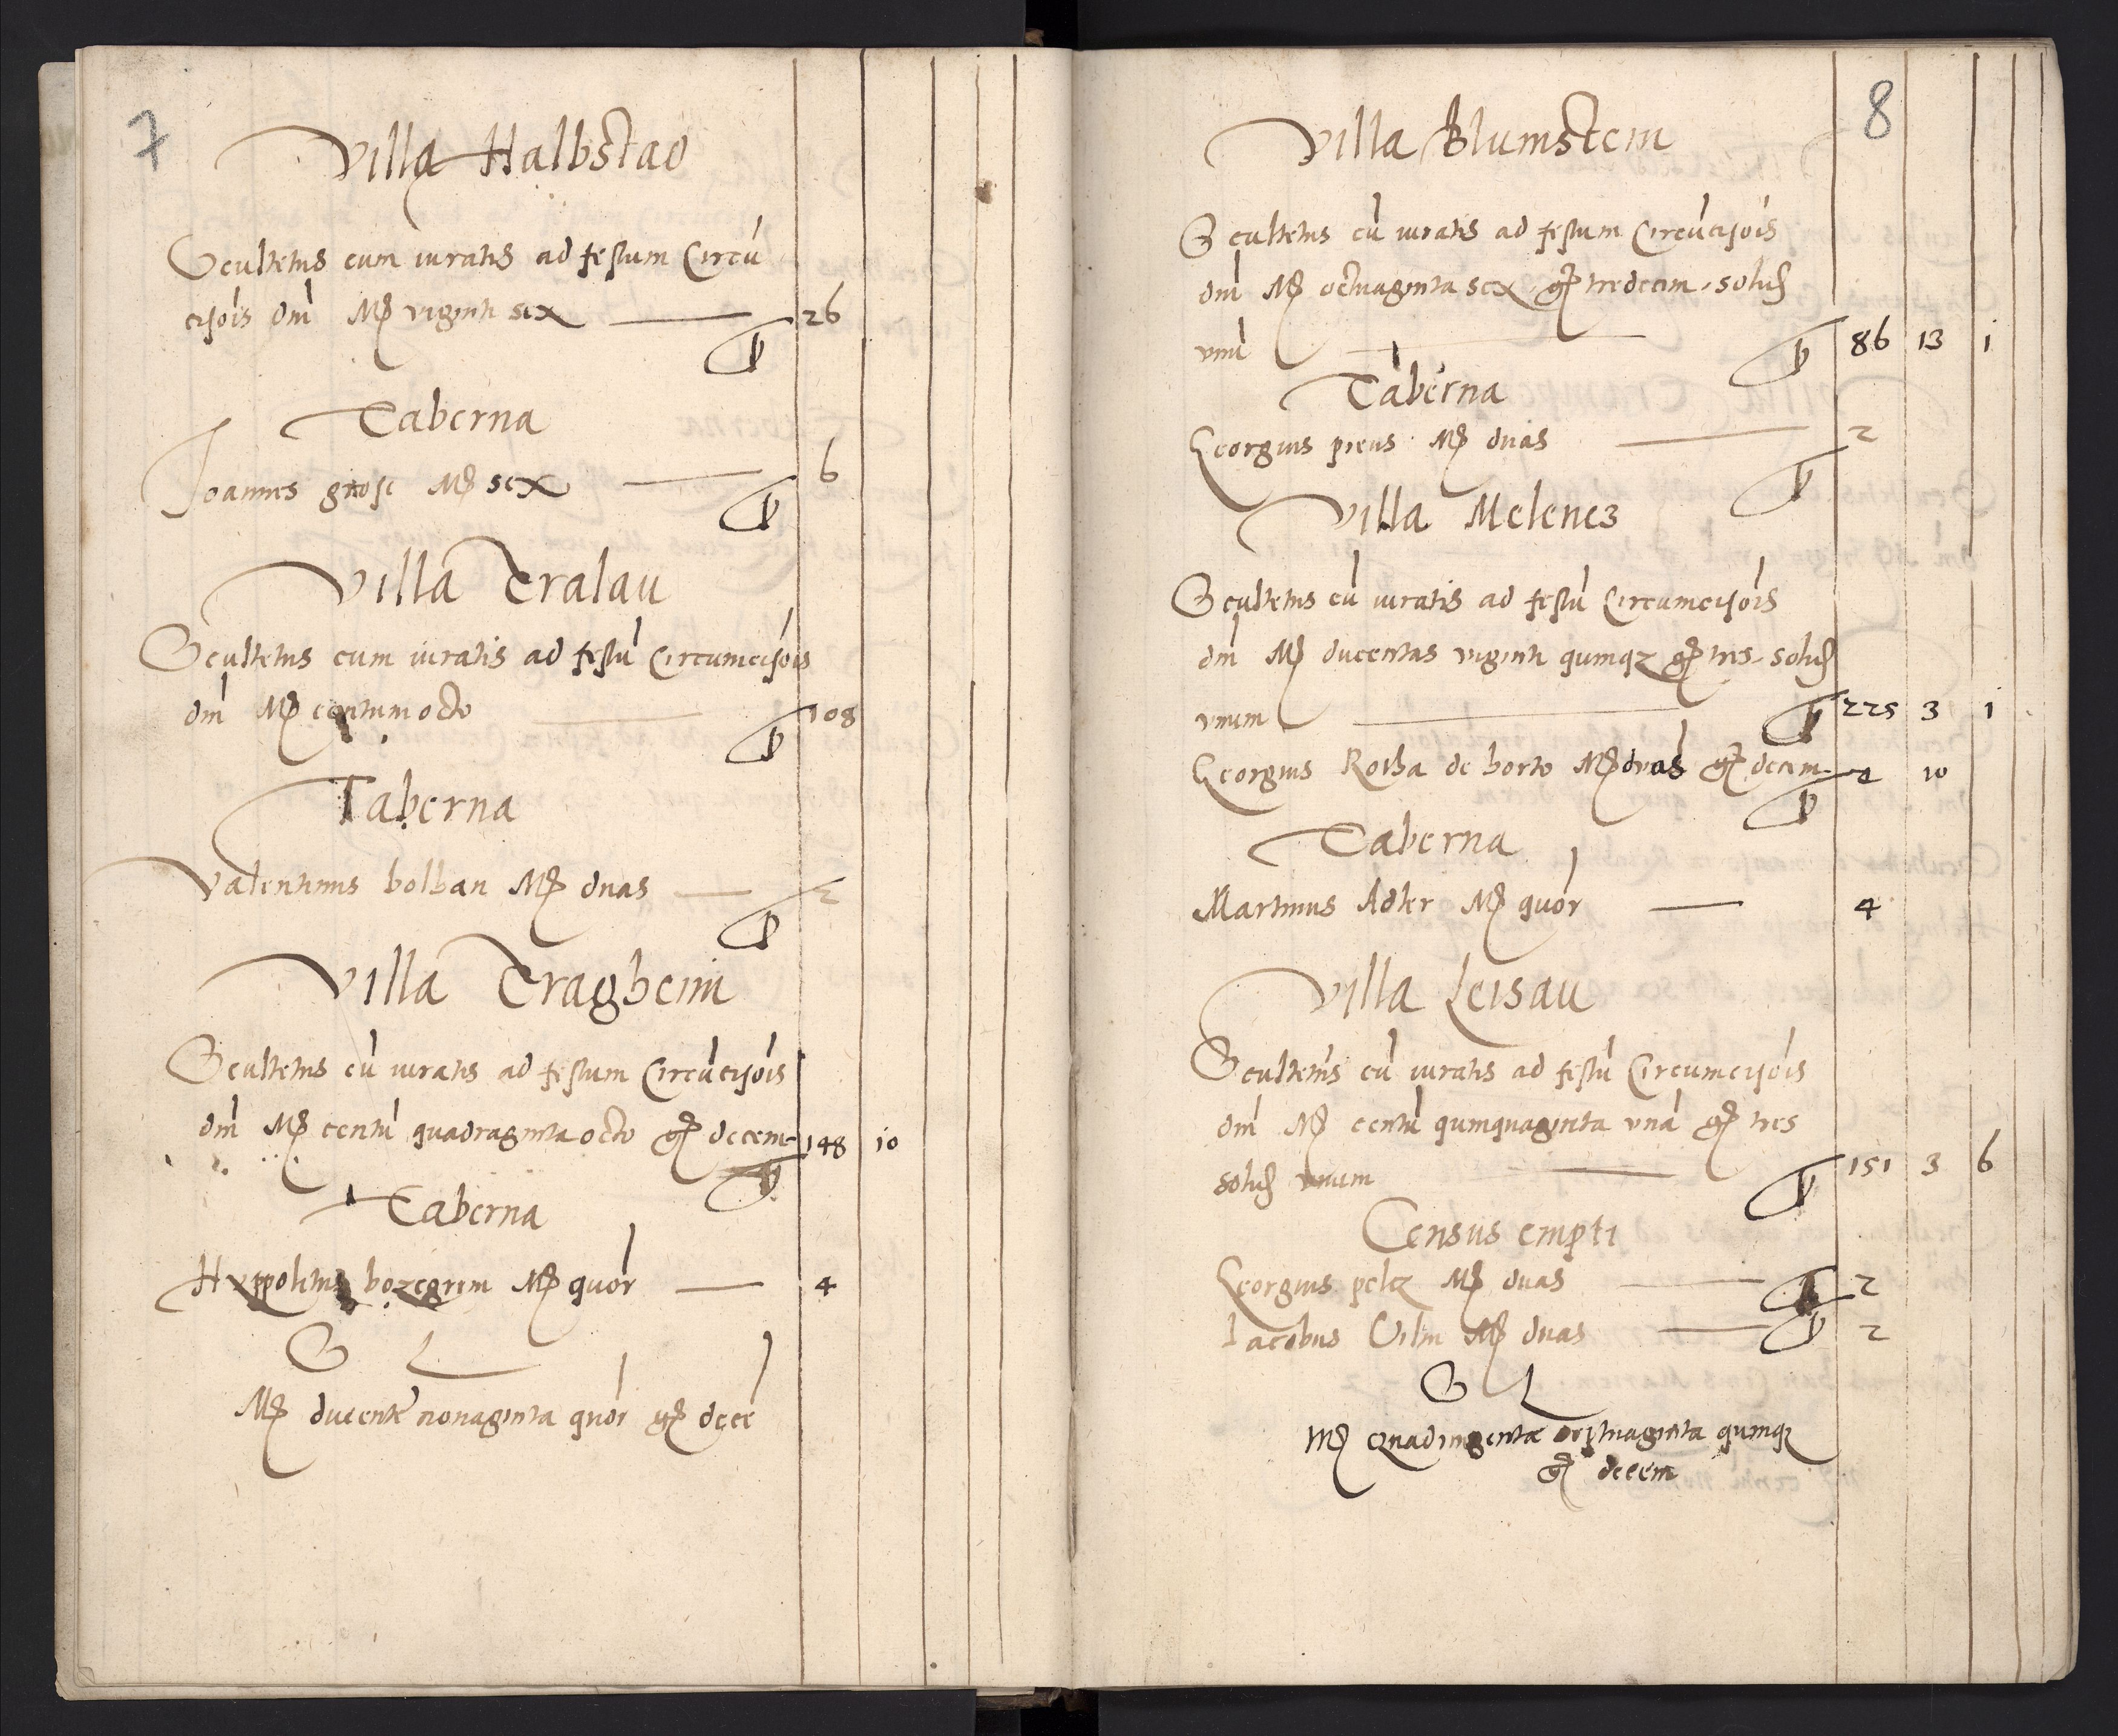 7
Villa Halbstad
Scultetus cum iuratis ad festum Circu
cisiois dni M viginti sex 26
Taberna
Joannes grose M sex 6
Villa Tralau
Scultetus cum iuratis ad festu Circumcisiois
dni M centum octo 108
Taberna
Valentinus bolban M duas 2
Villa Tragheim
Scultetus cu iuratis ad festum Circucisiois
dni M centu quadraginta octo g decem 148 10
Taberna
Hyppolitus bozegrim M quor 4
S L
M ducente nonaginta quor g dece
8
Villa Blumstein
Scultetus cu iuratis ad festum Circucisiois
dni M octuaginta sex g tredecim solid
unu 86 13 1
Taberna
Georgius preus M duas 2
Villa Melenez
Scultetus cu iuratis ad festu Circumcisiois
dni M ducentas viginti quinqz g tres solid
unum 225 3 1
Georgius Rotha de horto M duas g decem 2 10
Taberna
Martinus Adler M quor 4
Villa Leisau
Scultetus cu iuratis ad festu Circumcisiois
dni M centu quinquaginta una g tres
solid unum 151 3 6
Census empti
Georgius pelcz M duas 2
Iacobus Vilm M duas 2
S L
M Quadringentae septuaginta quinqz
g decem